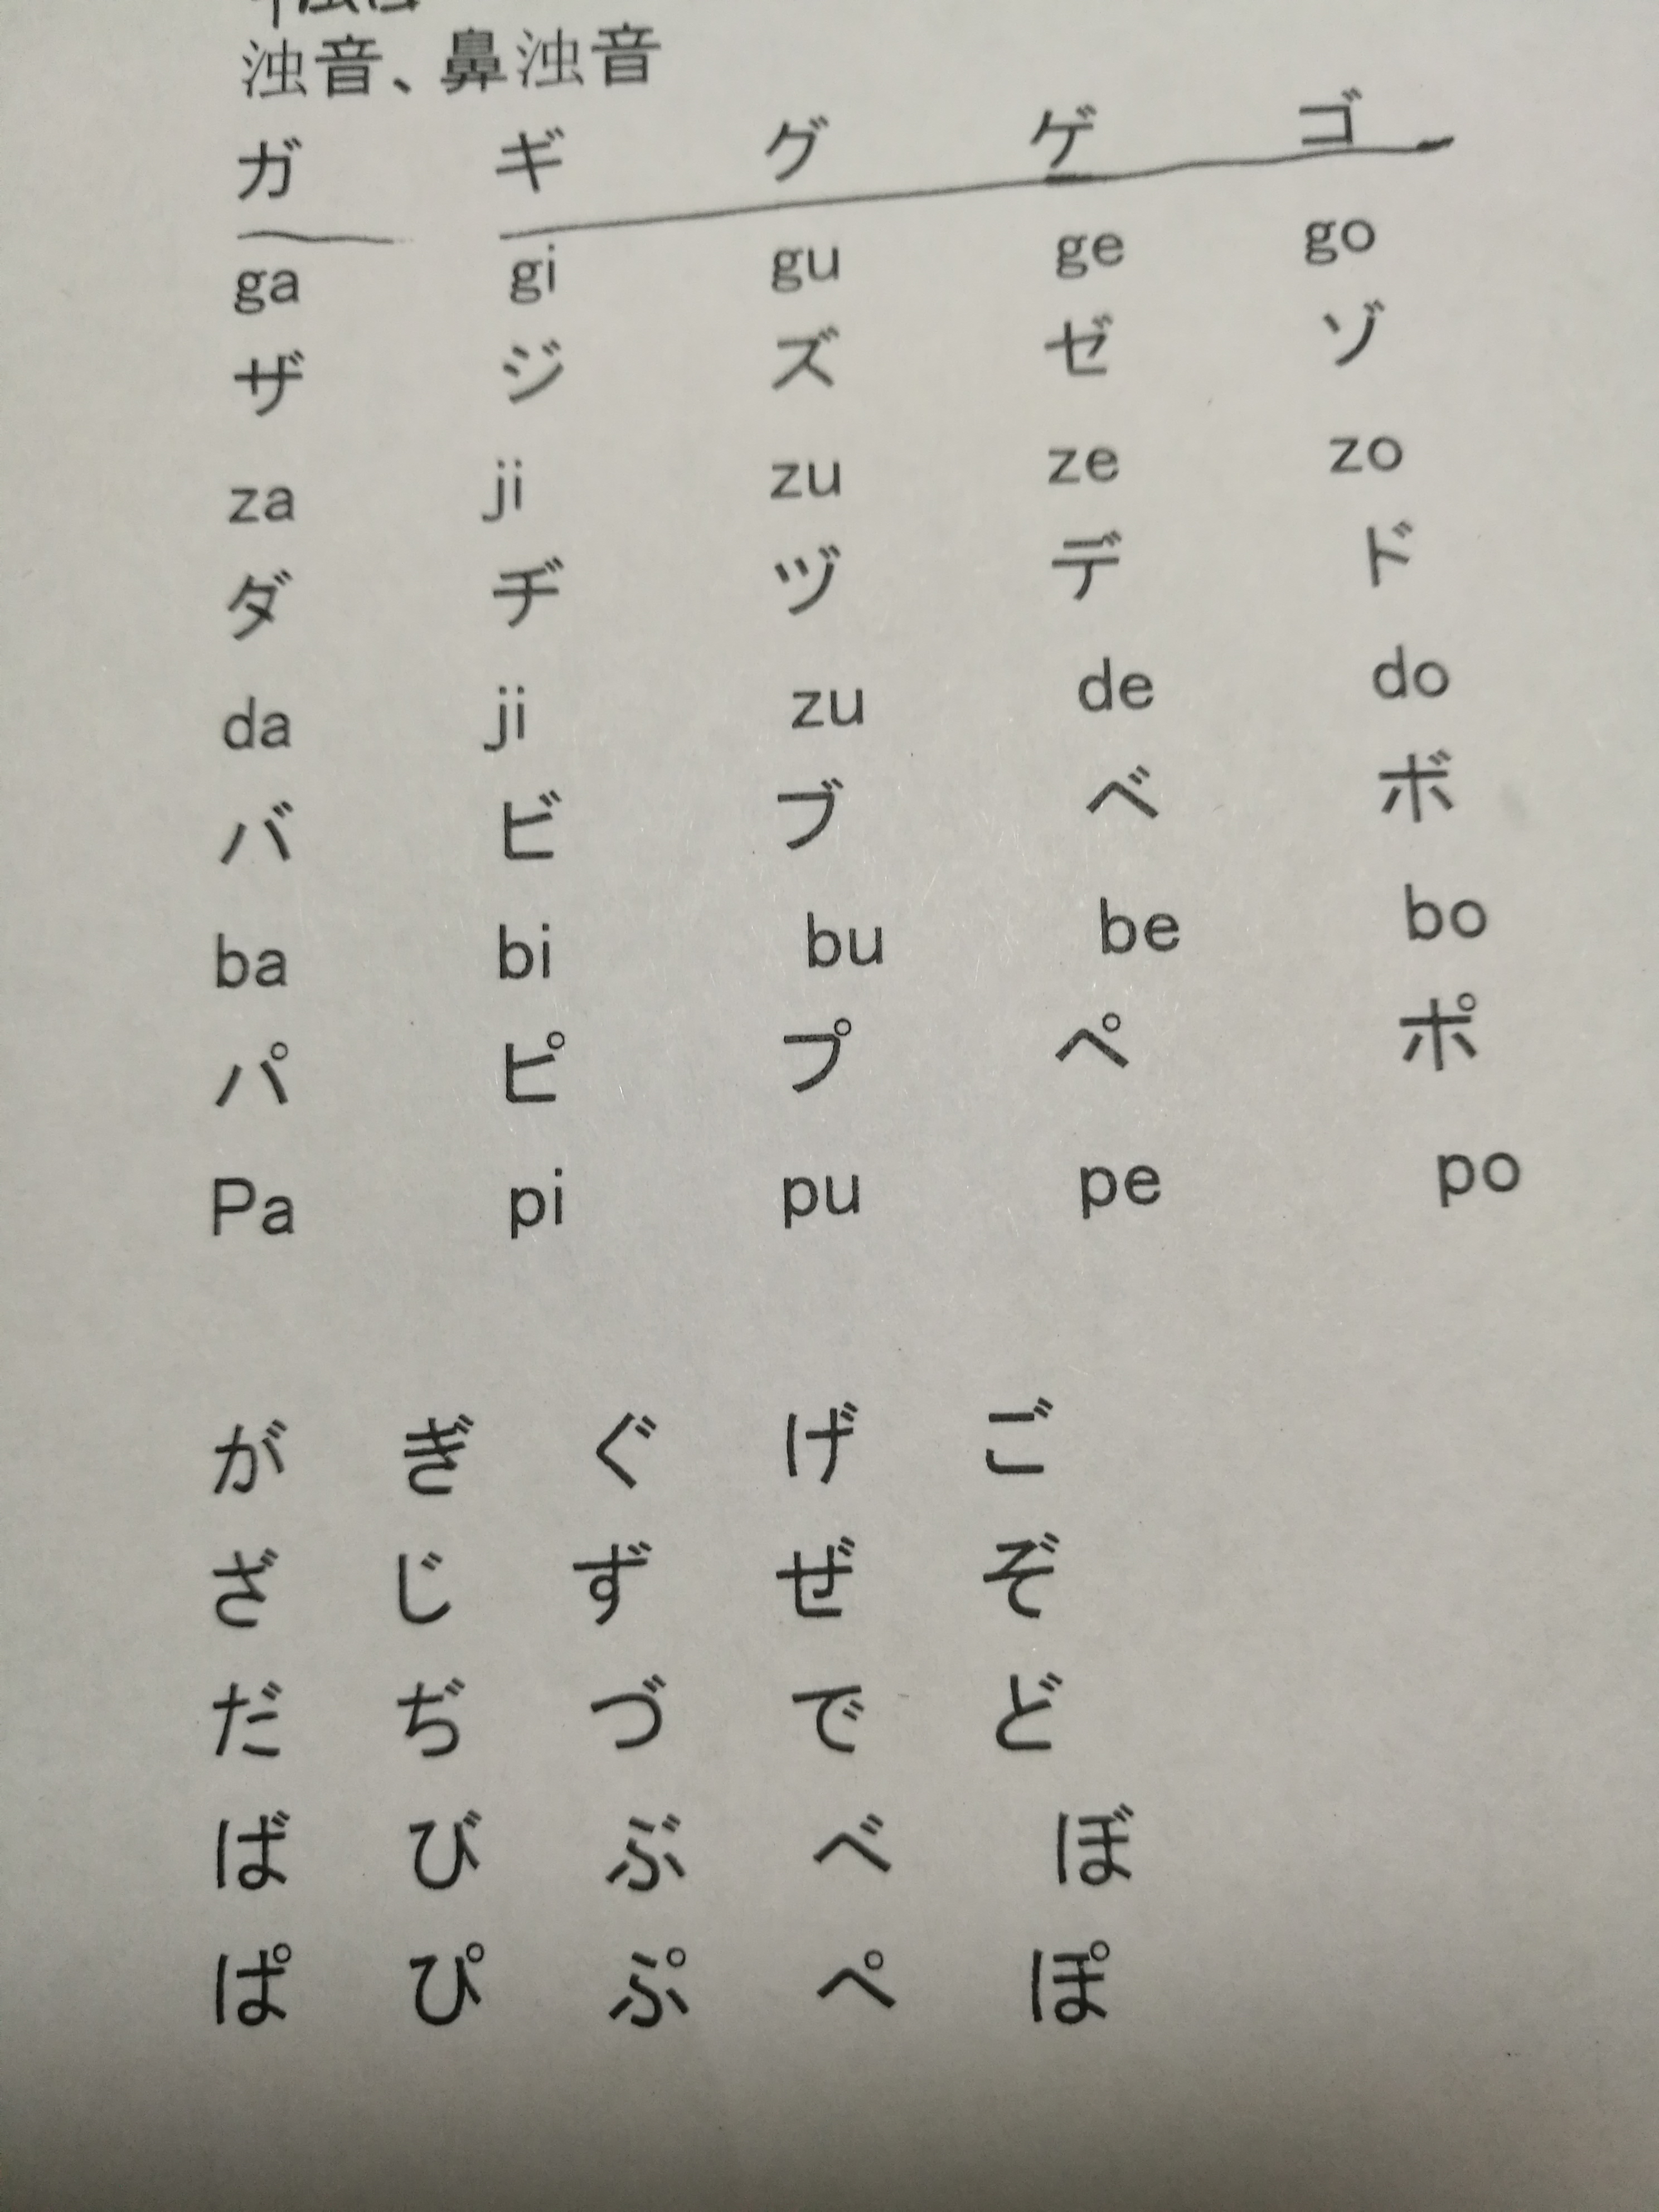 浊音、鼻浊音
ガ ギ グ ゲ ゴ
ga gi gu ge go
ザ ジ ズ ゼ ゾ
za ji zu ze zo
ダ ヂ ヅ デ ド
da ji zu de do
バ ビ ブ ベ ボ
ba bi bu be bo
パ ピ プ ペ ポ
Pa pi pu pe po
が ぎ ぐ げ ご
ざ じ ず ぜ ぞ
だ ぢ づ で ど
ば び ぶ べ ぼ
ぱ ぴ ぷ ぺ ぽ